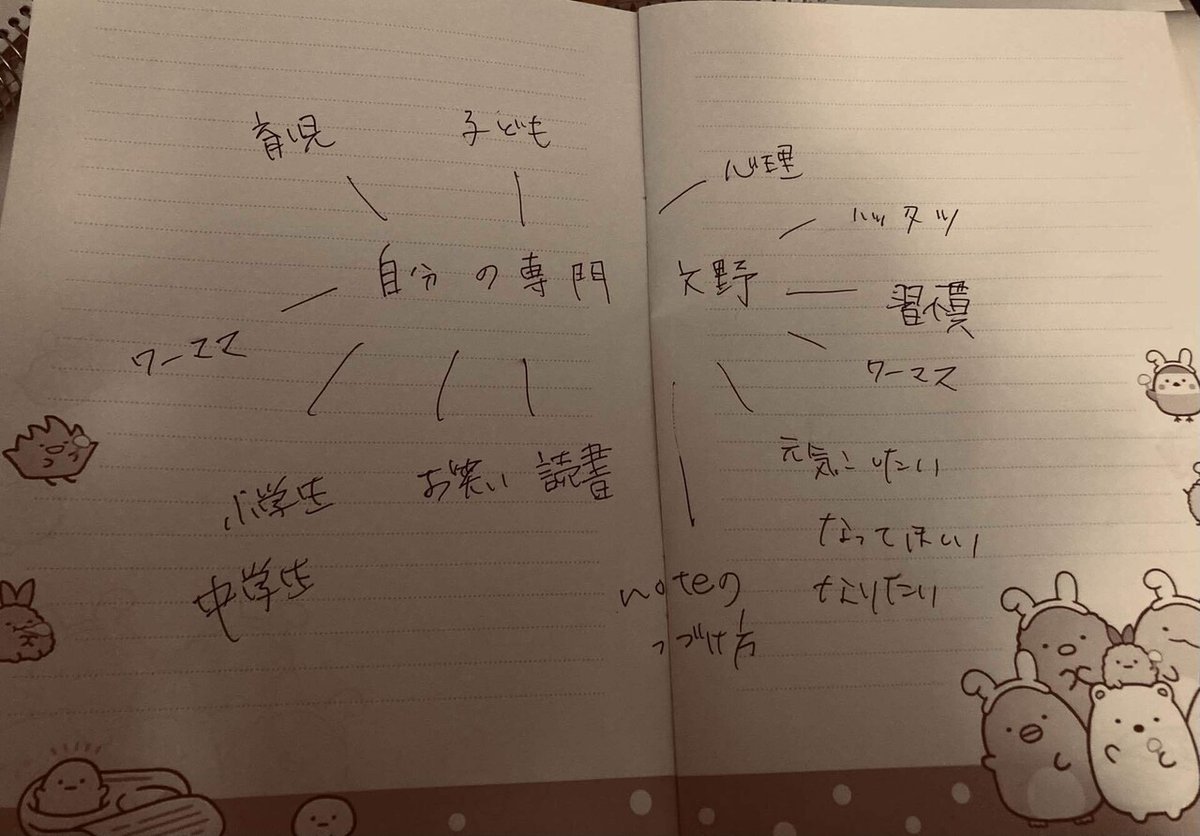 育児
子ども
心理
ハッタツ
自分の専門分野
習慣
ワーママ
ワーママ
小学生
中学生
お笑い
読書
元気にしたい
なってほしい
なりたい
noteの
つづけ方